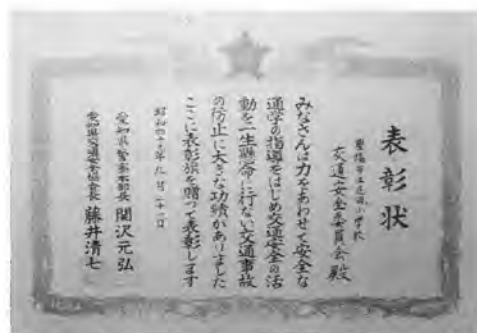 表彰状
豊橋市立
小学校
交通安全委員会殿
みなさんは力をあわせて安全な
通学の指導をはじめ交通安全の活
動を一生懸命に行ない交通事故
の防止に大きな功績がありました
ここに表彰旗を贈って表彰します
昭和四十 年九月二十一日
愛知県警察本部長 関沢元弘
愛知県交通安全協会長 藤井清七